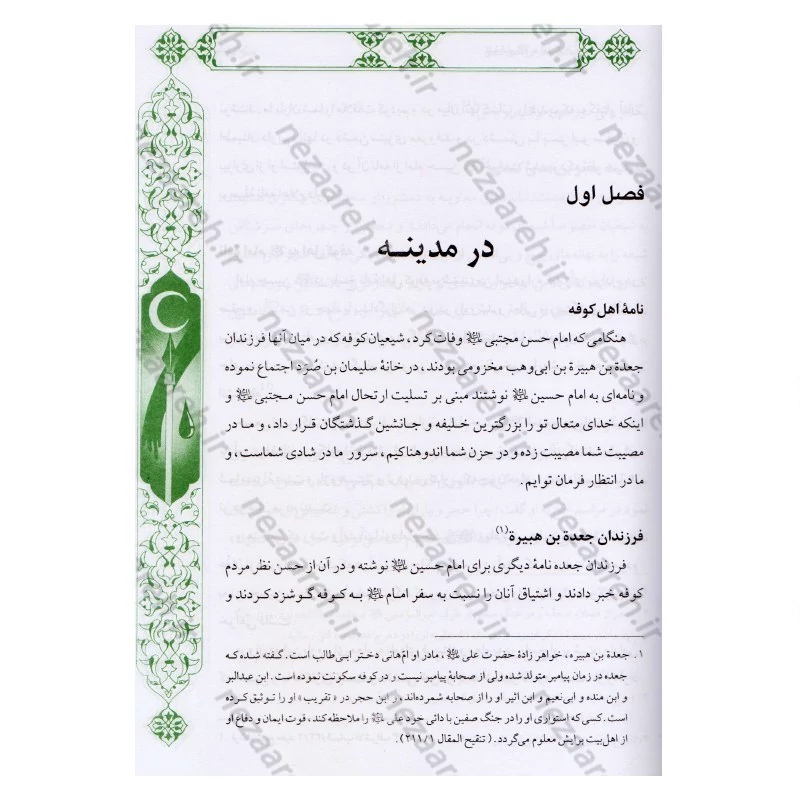 فصل اول
در مدینـــه
نامهٔ اهل کوفه
هنگامی که امام حسن مجتبی علیه‌السلام وفات کرد، شیعیان کوفه که در میان آنها فرزندان
جعدة بن هبیرة بن ابی‌وهب مخزومی بودند، در خانهٔ سلیمان بن صُرَد اجتماع نموده
و نامه‌ای به امام حسین علیه‌السلام نوشتند مبنی بر تسلیت ارتحال امام حسن مجتبی علیه‌السلام و
اینکه خدای متعال تو را بزرگترین خلیفه و جانشین گذشتگان قرار داد، و ما در
مصیبت شما مصیبت زده و در حزن شما اندوهناکیم، سرور ما در شادی شماست، و
ما در انتظار فرمان توایم.
فرزندان جعدة بن هبیرة(۱)
فرزندان جعده نامهٔ دیگری برای امام حسین علیه‌السلام نوشته و در آن از حسن نظر مردم
کوفه خبر دادند و اشتیاق آنان را نسبت به سفر امام علیه‌السلام به کوفه گوشزد کردند و
۱. جعدة بن هبیره، خواهر زادهٔ حضرت علی علیه‌السلام، مادر او امّ‌هانی دختر ابی‌طالب است. گفته شده که
جعده در زمان پیامبر متولد شده ولی از صحابهٔ پیامبر نیست و در کوفه سکونت نموده است. ابن عبدالبر
و ابن منده و ابی‌نعیم و ابن اثیر او را از صحابه شمرده‌اند، و ابن حجر در «تقریب» او را توثیق کرده
است. کسی که استواری او را در جنگ صفین با دائی خود علی علیه‌السلام را ملاحظه کند، قوت ایمان و دفاع او
از اهل‌بیت برایش معلوم می‌گردد. (تنقیح المقال ۲۱۱/۱).
nezaareh.ir